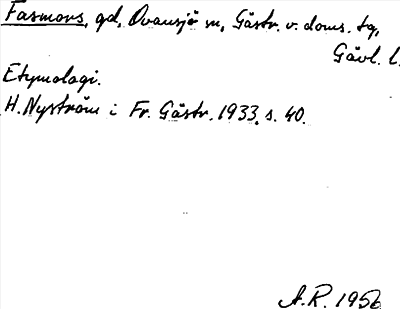 Fasmors, gd, Ovansjö sn, Gästr. v. doms. tg,
Gävl. l.
Etymologi.
H. Nyström i Fr. Gästr. 1933, s. 40.
A.R. 1956